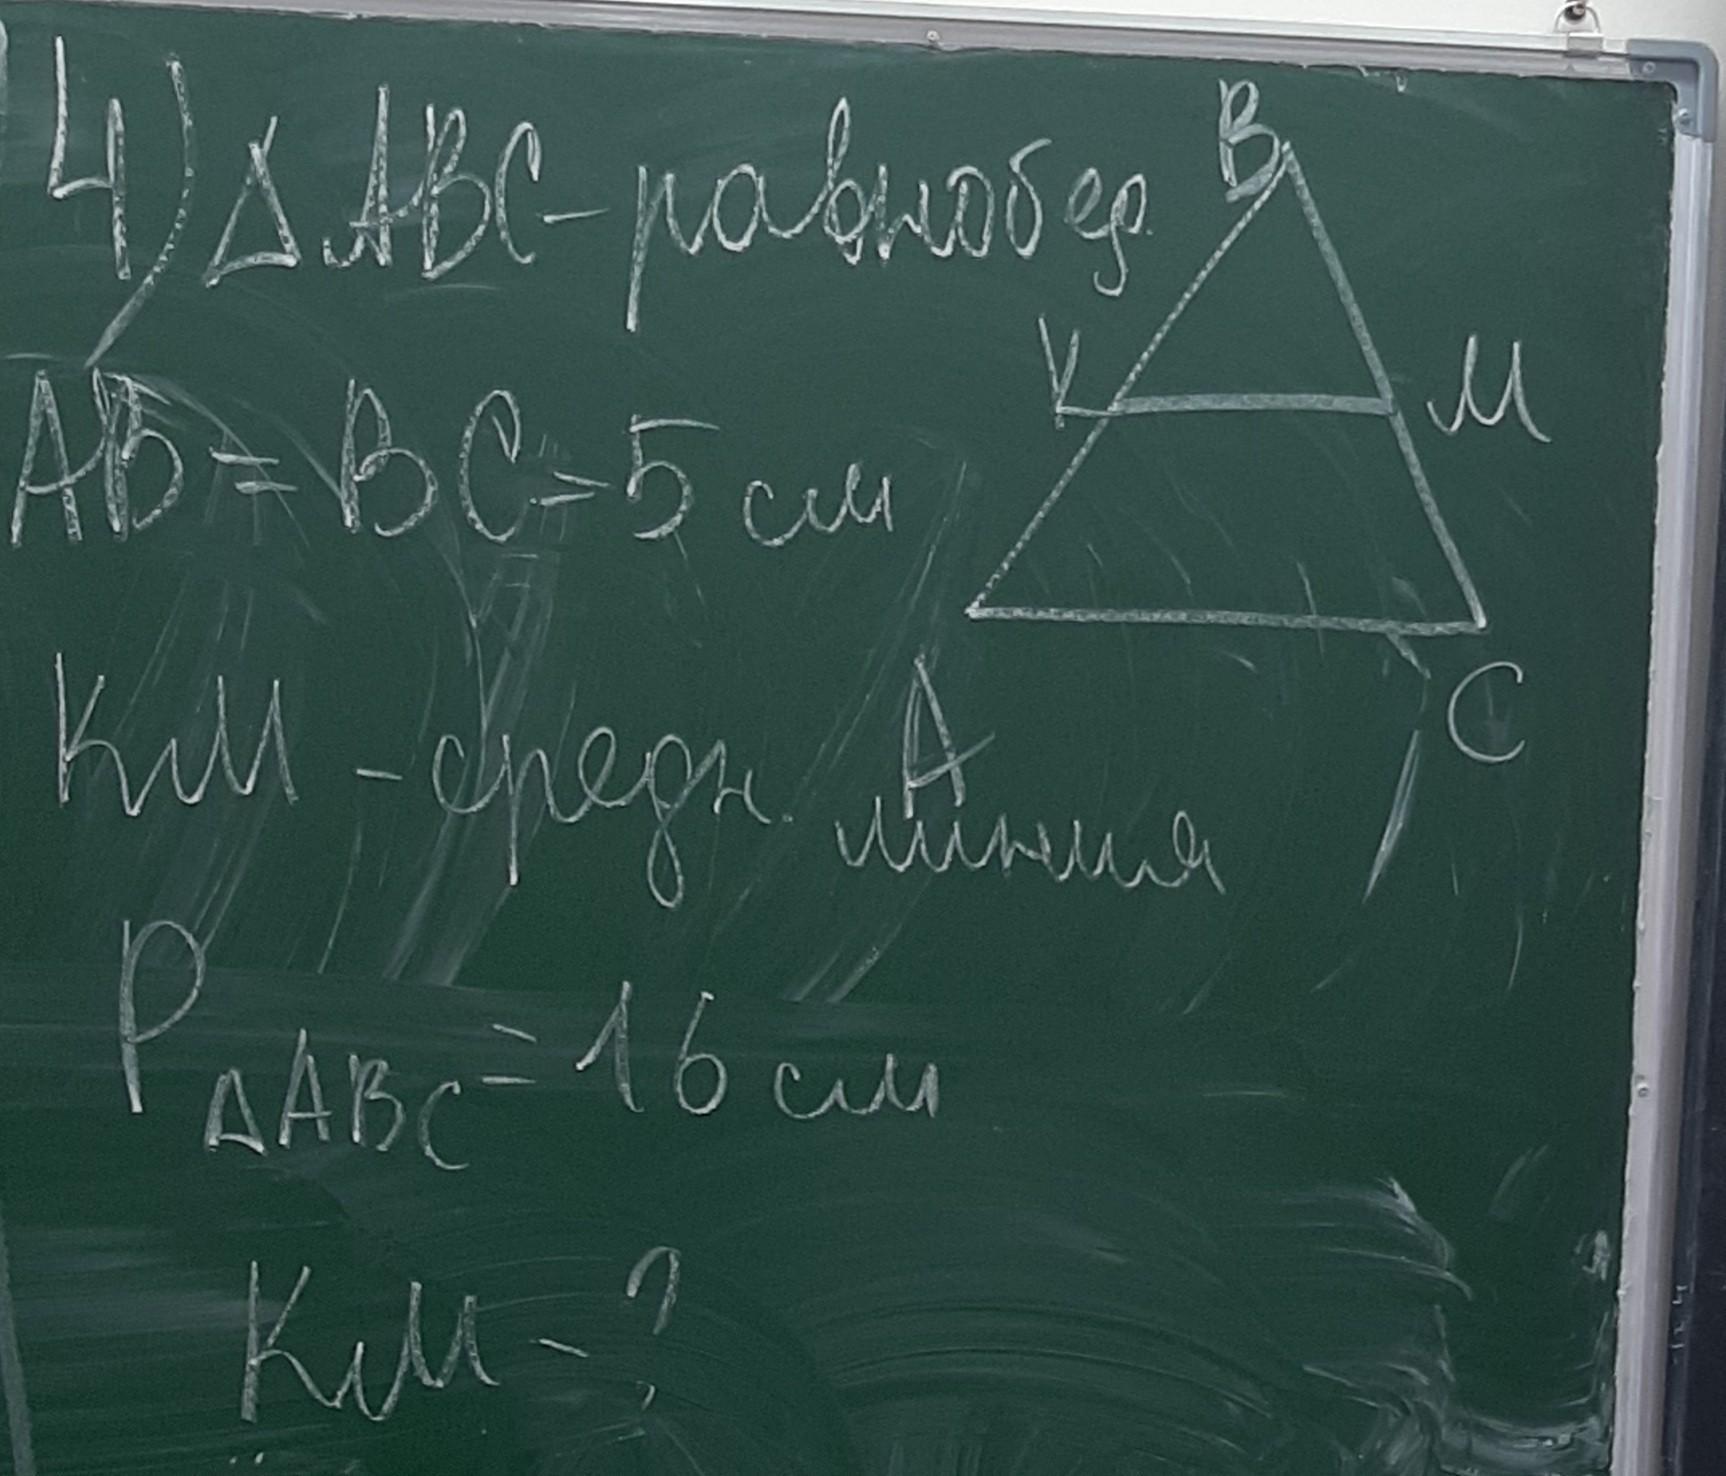 4) ΔABC - равнобер.
AB = BC = 5 см
KM - средн. линия
P ΔABC = 16 см
KM - ?
B
K M
A
C